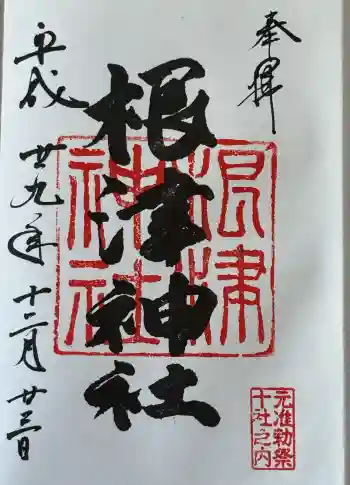 奉拝
根津神社
根津
神社
元准勅祭
十社之内
平成廿九年十二月廿三日